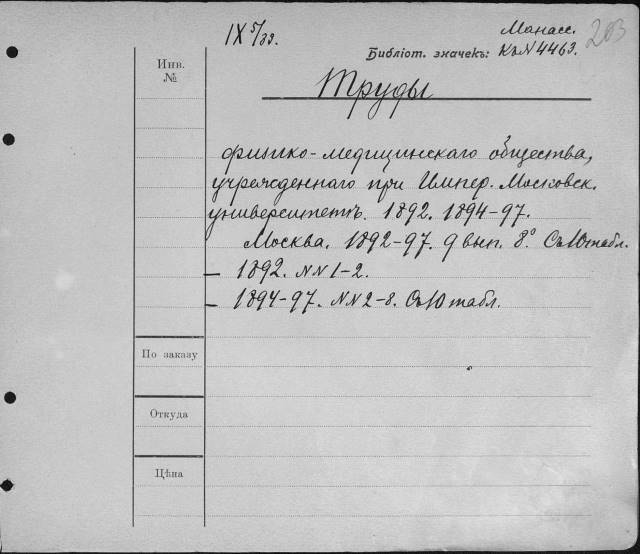 IX 5/33.
Манасс.
203
Библіот. значекъ: КъN4463.
Инв. №
Труды
физико-медицинскаго общества,
учрежденнаго при Импер. Московск.
университетѣ. 1892. 1894-97.
Москва. 1892-97. 9 вып. 8° Съ 10 табл.
— 1892. NN 1-2.
— 1894-97. NN 2-8. Съ 10 табл.
По заказу
Откуда
Цѣна